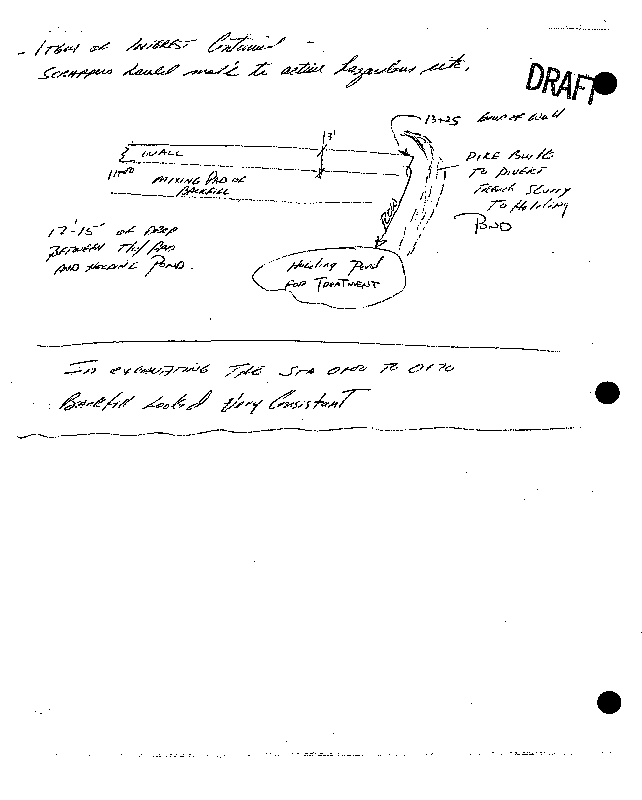 - ITEMS OF INTEREST Continued -
to active hazardous site.
DRAFT
13+25 End of Wall
3'
WALL
11+00
MIXING PAD OF
BACKFILL
DIKE Built
TO DIVERT
Trench Slurry
TO Holding
POND
12'-15' OF DROP
BETWEEN THIS PAD
AND HOLDING POND.
Holding Pond
FOR TREATMENT
IN EXCAVATING THE STA 0+00 TO 0+70
Backfill Looked Very Consistant